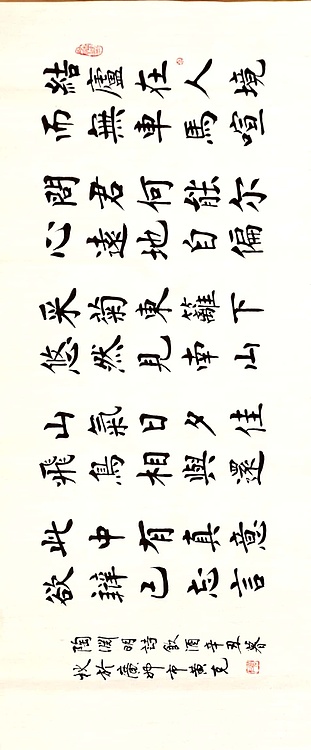 結廬在人境
而無車馬喧
問君何能尔
心遠地自偏
采菊東籬下
悠然見南山
山氣日夕佳
飛鳥相與還
此中有真意
欲辨已忘言
陶淵明詩飲酒辛丑暮
秋於市黄克